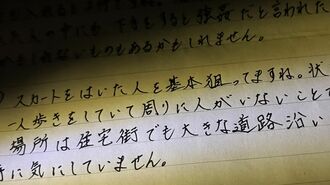 人の中にも下手をすると強姦だと言われた
かもしれないものもあるかもしれません。
スカートをはいた人を基本狙ってますね。状
一人歩きをしていて周りに人がいないことで
場所は住宅街でも大きな道路沿い
に気にしていません。